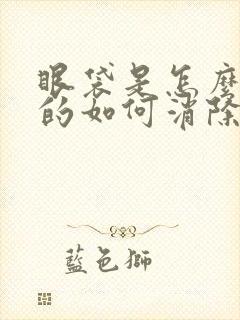 眼袋是怎麼
的如何消除
藍色獅